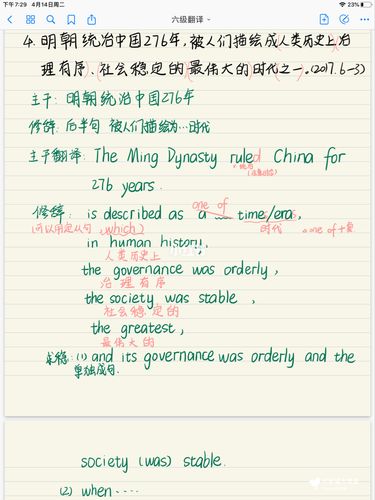 下午7:29 4月14日周二
23%
六级翻译
4. 明朝统治中国276年，被人们描绘成人类历史上治
理有序、社会稳定的最伟大的时代之一。(2017.6-3)
主干：明朝统治中国276年
修辞：后半句 被人们描绘为…时代
主干翻译：The Ming Dynasty ruled China for
276 years.
one of
修辞：is described as a time/eras,
(可以用定从句，which) 时代 one of+复
in human history,
人类历史上
the governance was orderly,
治理有序
the society was stable,
社会稳定的
the greatest,
最伟大的
求稳：(1) and its governance was orderly and the
单独成句.
society (was) stable.
(2) when····